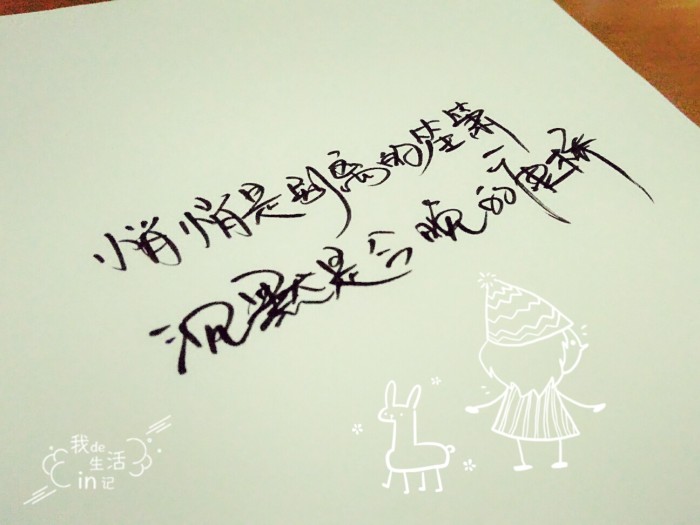 悄悄是别离的笙箫
沉默是今晚的康桥
我de
生活
in记